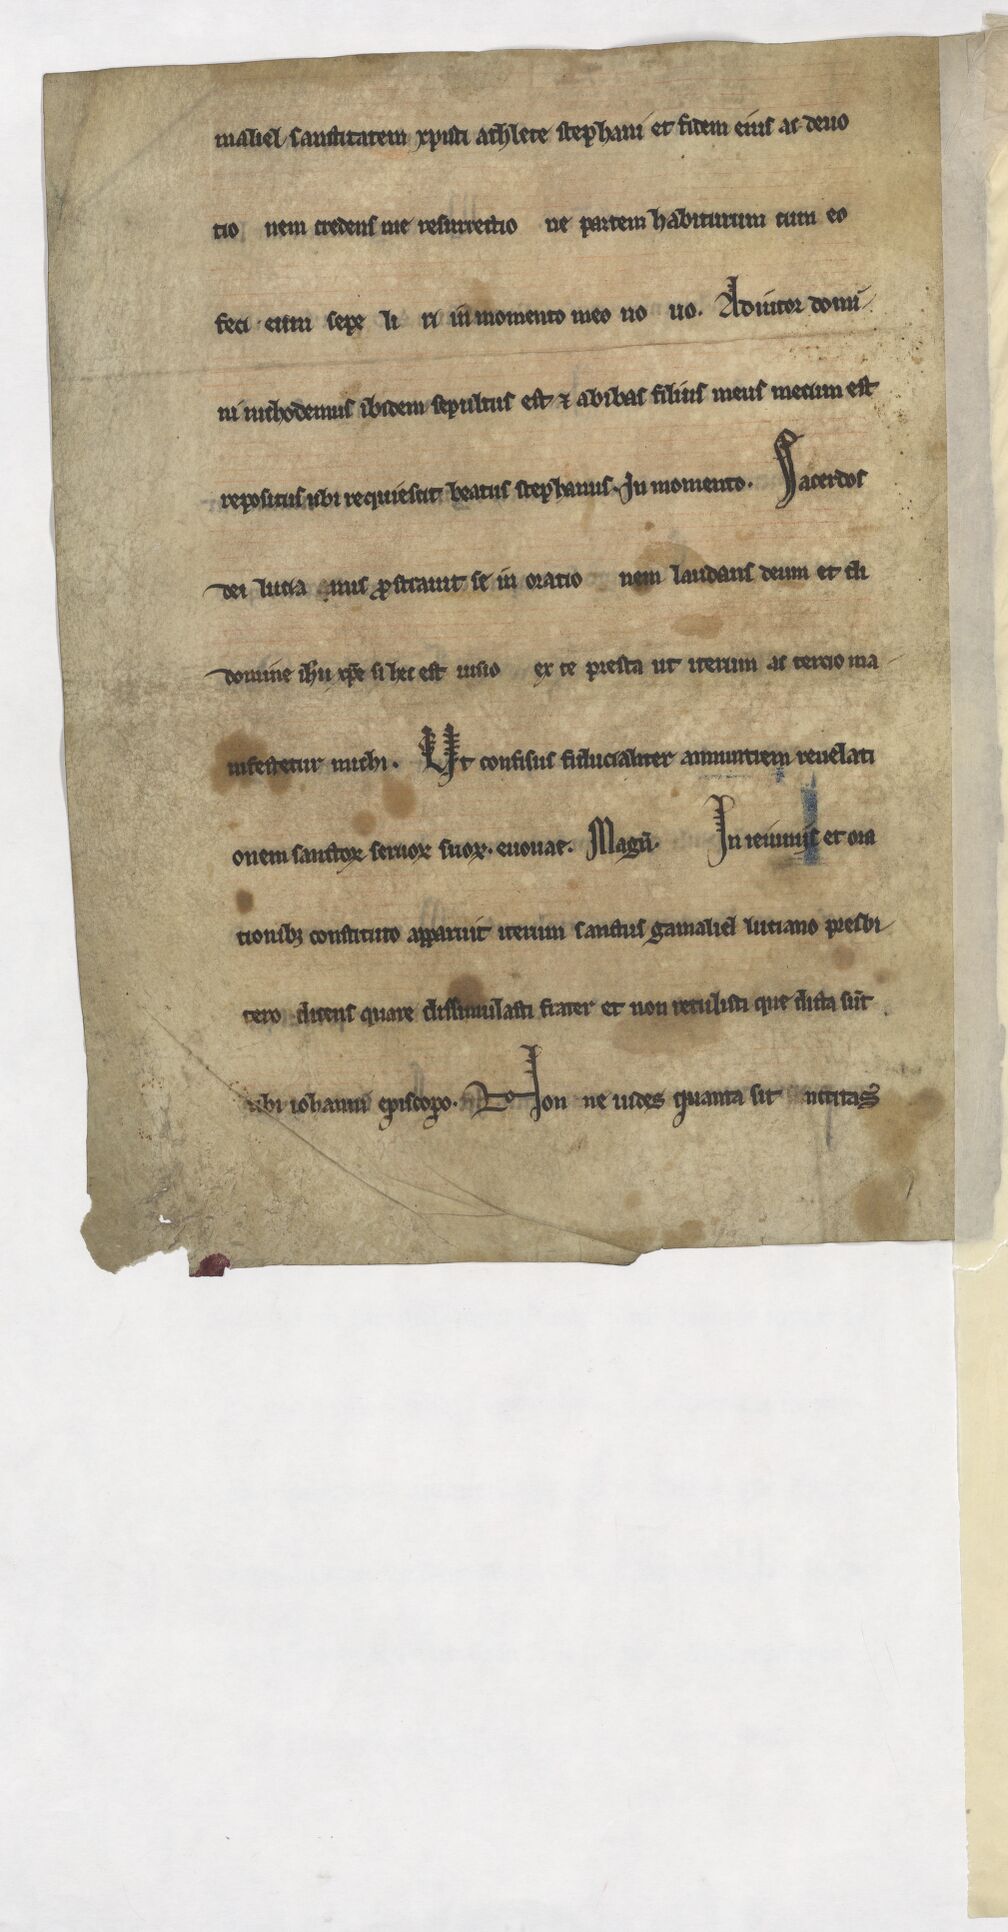 maliel sanctitatem xpisti athlete stephani et fidem eius ac deuo
tio nem credens me resurrectio ne partem habiturum cum eo
feci eum sepe li ri in momento meo no uo. Adiutor domi
ni nichodemus ibidem sepultus est & abibas filius meus mecum est
repositus ubi requiescit beatus stephanus. In momento. Sacerdos
dei lucia nus prostrauit se in oratio nem laudans deum et di
domine ihu xpe si hec est uisio ex te presta ut iterum ac tercio ma
nifestetur michi. Ut confisus fiducialiter annuntiem reuelati
onem sanctoꝝ seruoꝝ suoꝝ. euouae. Magn̄. In ieiuniis et ora
tionibꝫ constituto apparuit iterum sanctus gamaliel luciano presbi
tero dicens quare dissimulasti frater et non retulisti que dicta sūt
tibi iohanni episcopo. Non ne uides quanta sit